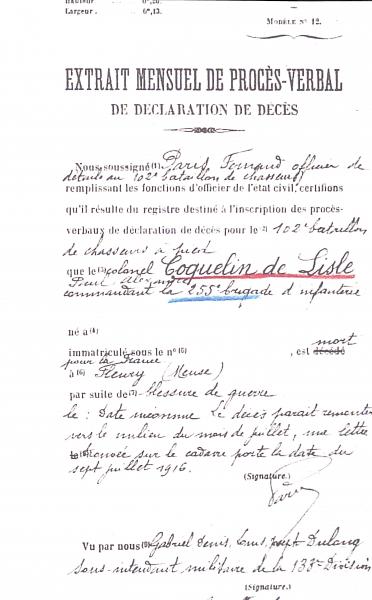 Hauteur 0m,20.
Largeur 0m,13.
MODÈLE N° 12.
EXTRAIT MENSUEL DE PROCÈS-VERBAL
DE DECLARATION DE DÉCÈS
Nous soussigné (1) Paris Fernand officier de
détails au 102e bataillon de chasseurs
remplissant les fonctions d'officier de l'état civil, certifions
qu'il résulte du registre destiné à l'inscription des procès-
verbaux de déclaration de décès pour le (2) 102e bataillon
de chasseurs à pied
que le (3) colonel Coquelin de Lisle
Paul
commandant la 255e brigade d'infanterie
né à (4)
mort
immatriculé sous le n° (5) , est décédé
pour la France
à (6) Fleury (Meuse)
par suite de (7) blessure de guerre
le : Date inconnue Le décès parait remonter
vers le milieu du mois de juillet, une lettre
trouvée sur le cadavre porte la date du
sept juillet 1916.
(Signature.)
Paris
Vu par nous (9) Gabriel Denis, Louis,
Sous-intendant militaire de la 133e Division
(Signature.)